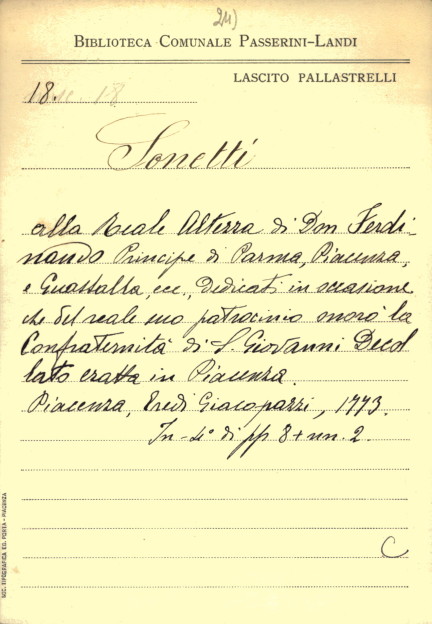 24)
BIBLIOTECA COMUNALE PASSERINI-LANDI
LASCITO PALLASTRELLI
18.
Sonetti
alla Reale Altezza di Don Ferdi-
nando Principe di Parma, Piacenza,
e Guastalla, ecc., dedicati in occasione
che del reale suo patrocinio onorò la
Confraternità di S. Giovanni Decol
lato eratta in Piacenza.
Piacenza, Eredi Giacopazzi, 1773.
In-4° di pp 8+nn. 2.
C
SOC. TIPOGRAFICA ED. PORTA - PIACENZA